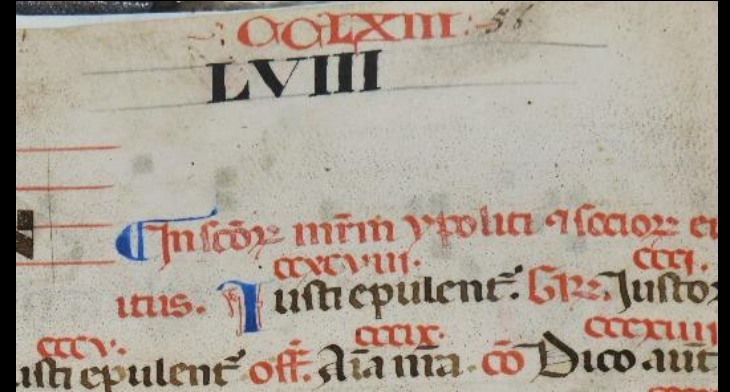 CCLXIII. 58
LVIII
¶ In scōꝝ mr̄m ypoliti ⁊ socioꝝ ei
ccxcviii. ccci.
itus. Iusti epulent᷑. Gr̄. Iustoꝝ
cccv. cccix. cccxiiii
usti epulent᷑ off̄. Aīa nr̄a. cō Dico aut̄